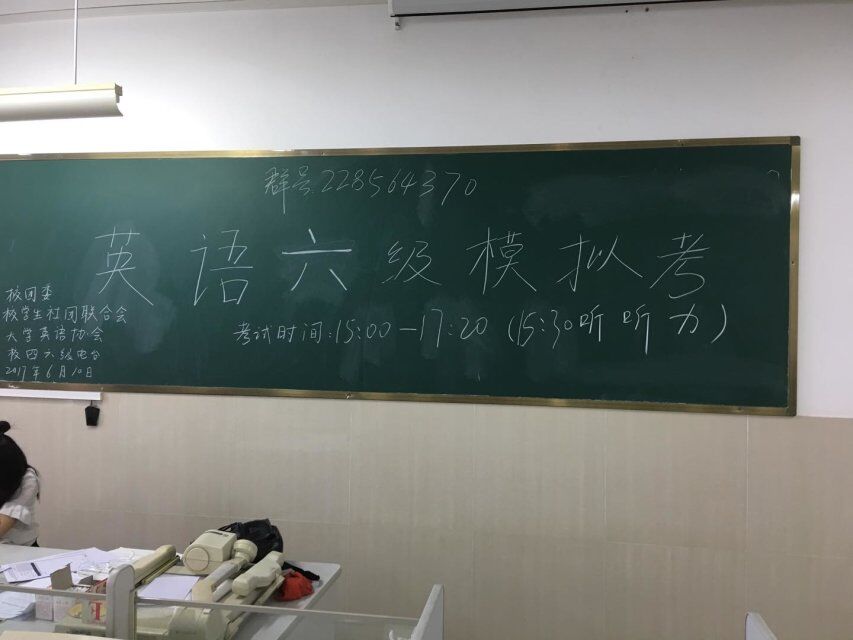 群号:228564370
英语六级模拟考
考试时间:15:00-17:20(15:30听听力)
校团委
校学生社团联合会
大学英语协会
校四六级电台
2017年6月10日